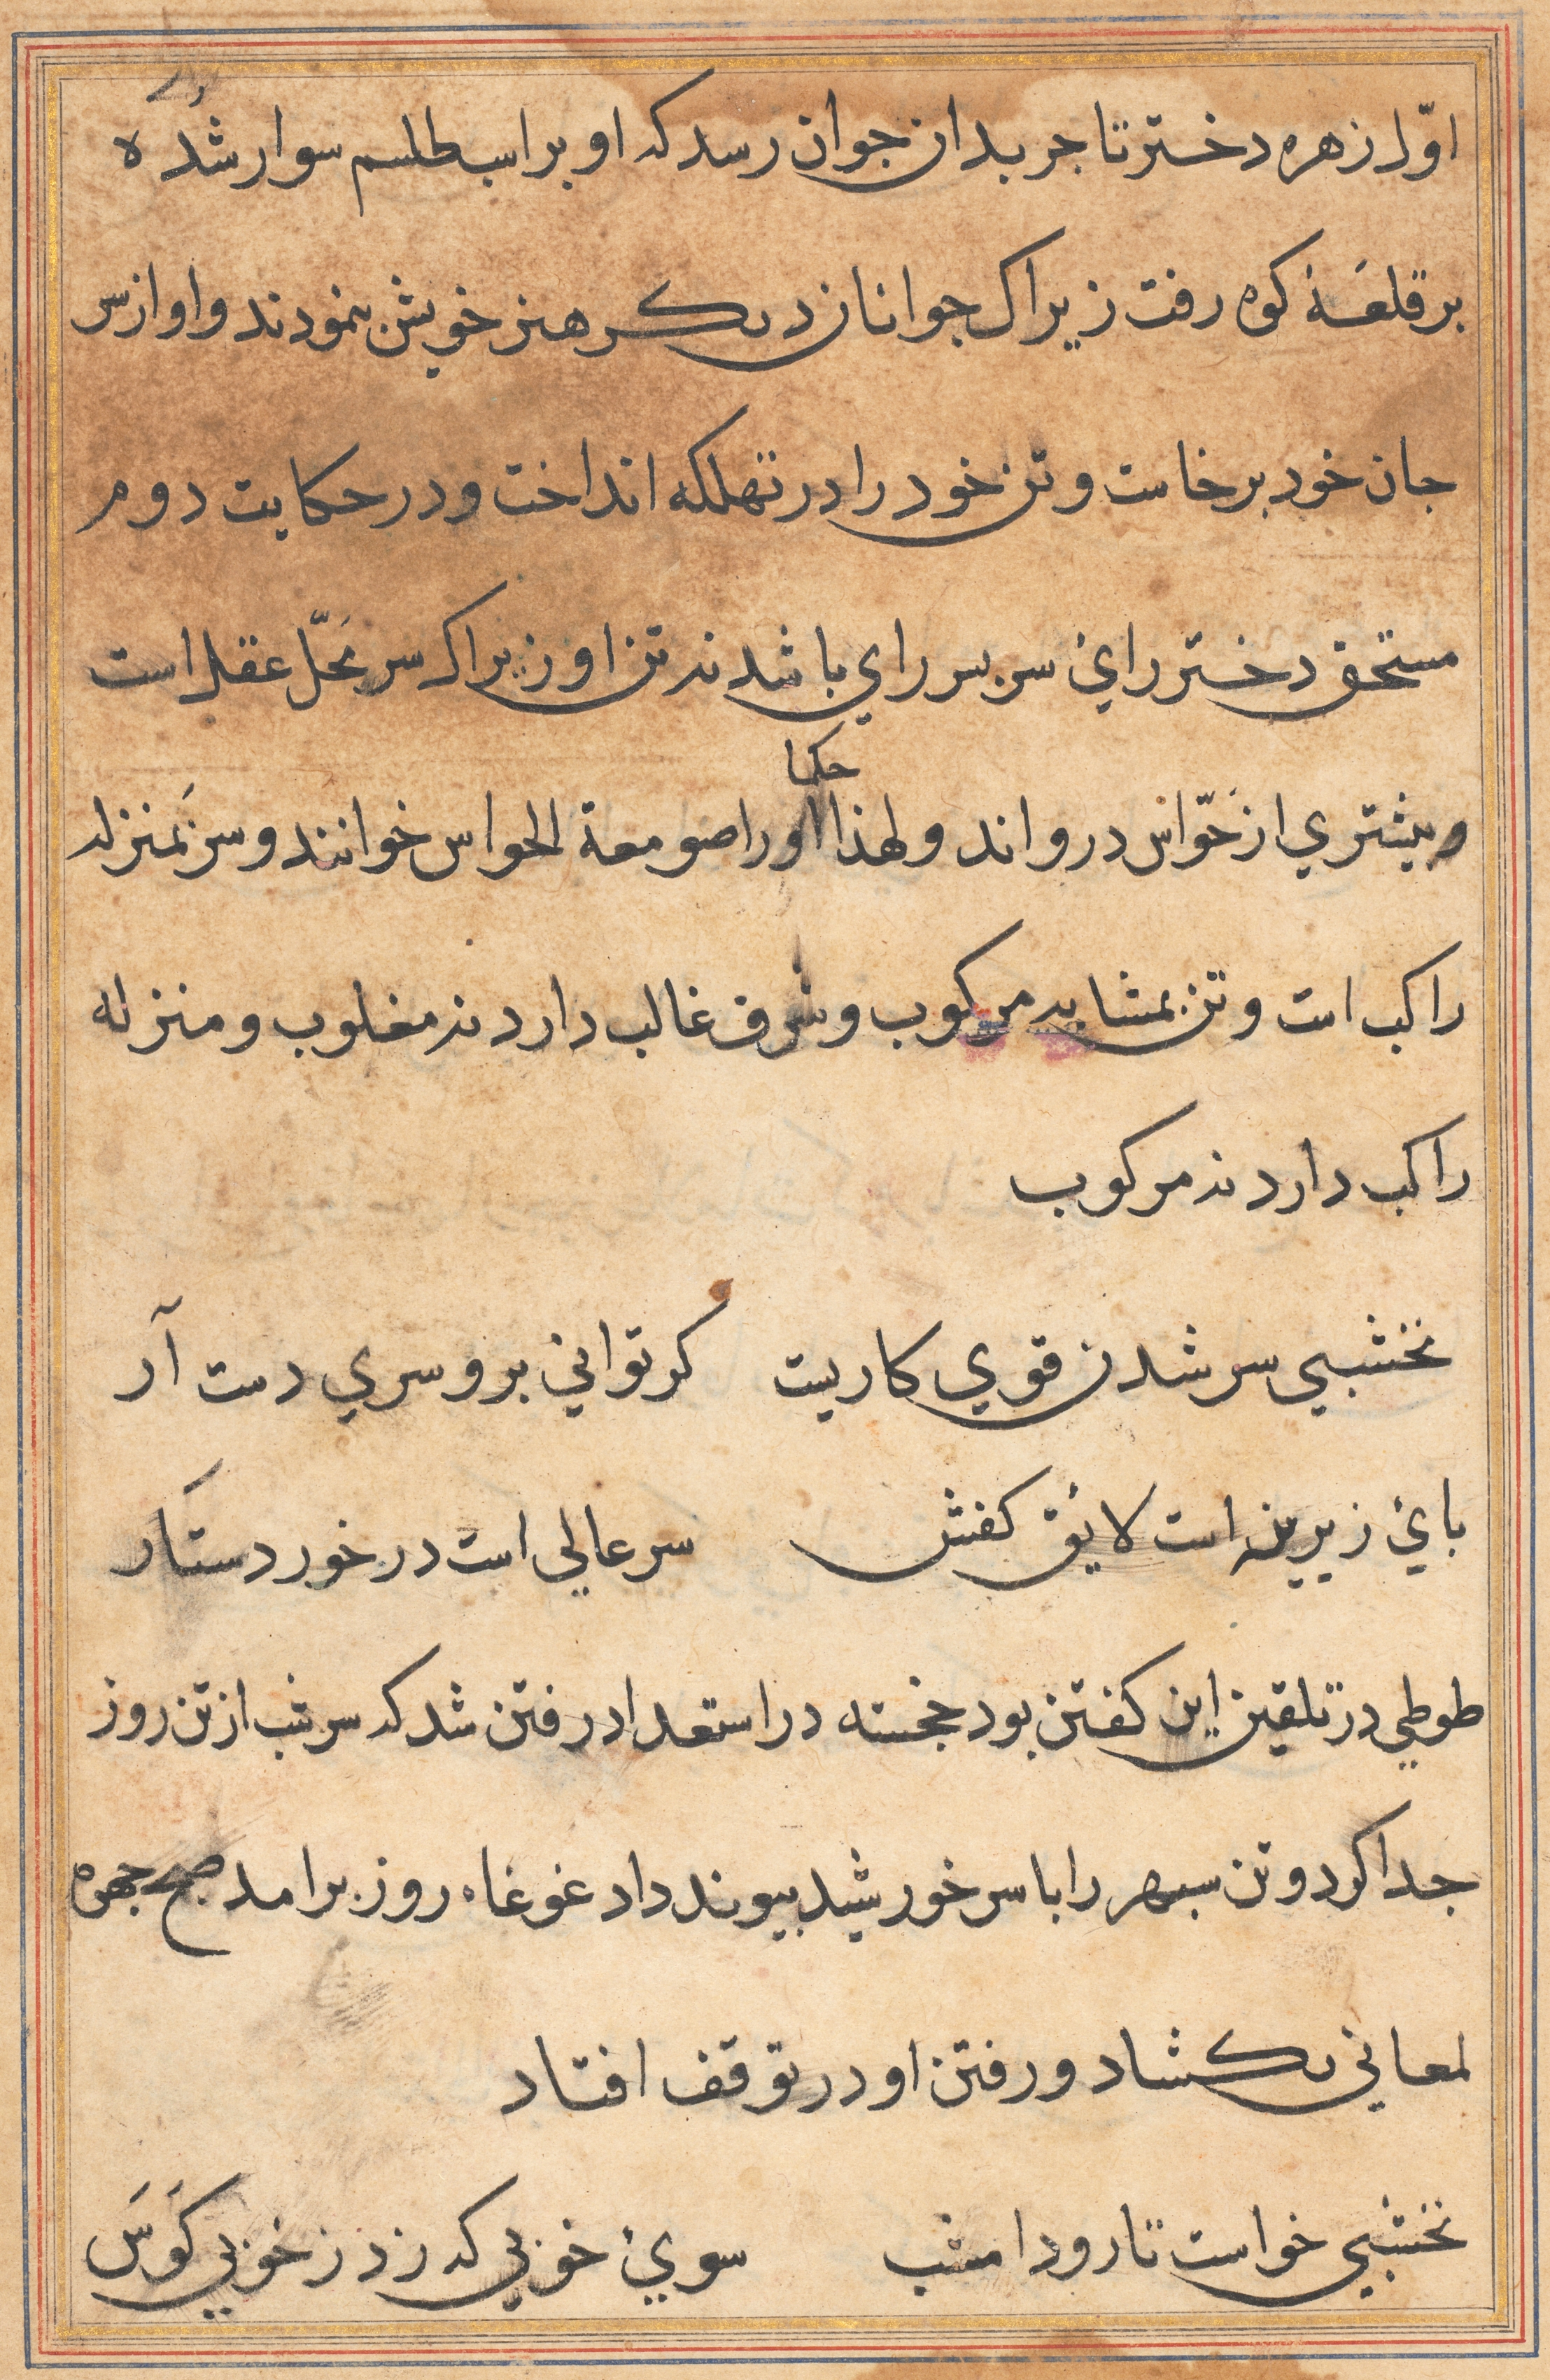 اوّل زهره دختر تاجر بدان جوان رسد که او بر اسب طلسم سوار شده
بر قلعهٔ کوه رفت زیراک جوانان دیکر هنر خویش بنمودند و او از سر
جان خود برخاست و تن خود را در تهلکه انداخت و در حکایت دوم
مستحق دختر رایٔ سر بسر راي باشد نه تن او زیراک سر محلّ عقل است
و بیشتري از حوّاس درو اند و لهذا حکما اورا صومعة الحواس خوانند و سر بمنزله
راکب است و تن بمشابه مرکوب و شرف غالب دارد نه مغلوب و منزله
راکب دارد نه مرکوب
نخشبي سر شدن قوي کاریست کر تواني برو سري دست آر
بائ زیرین است لایٔق کفش سر عالي است در خور دستار
طوطي در تلقین این کفتن بود خجسته در استعداد رفتن شد که سر شب از تن روز
جدا کرد و تن سبهر را با سر خورشید بیوند داد غوغاء روز برامد صبح جهره
لمعاني بکشاد و رفتن او در توقف افتاد
نخشبي خواست تا رود امشب سوئ خوبي که زد ز خوبي کوس